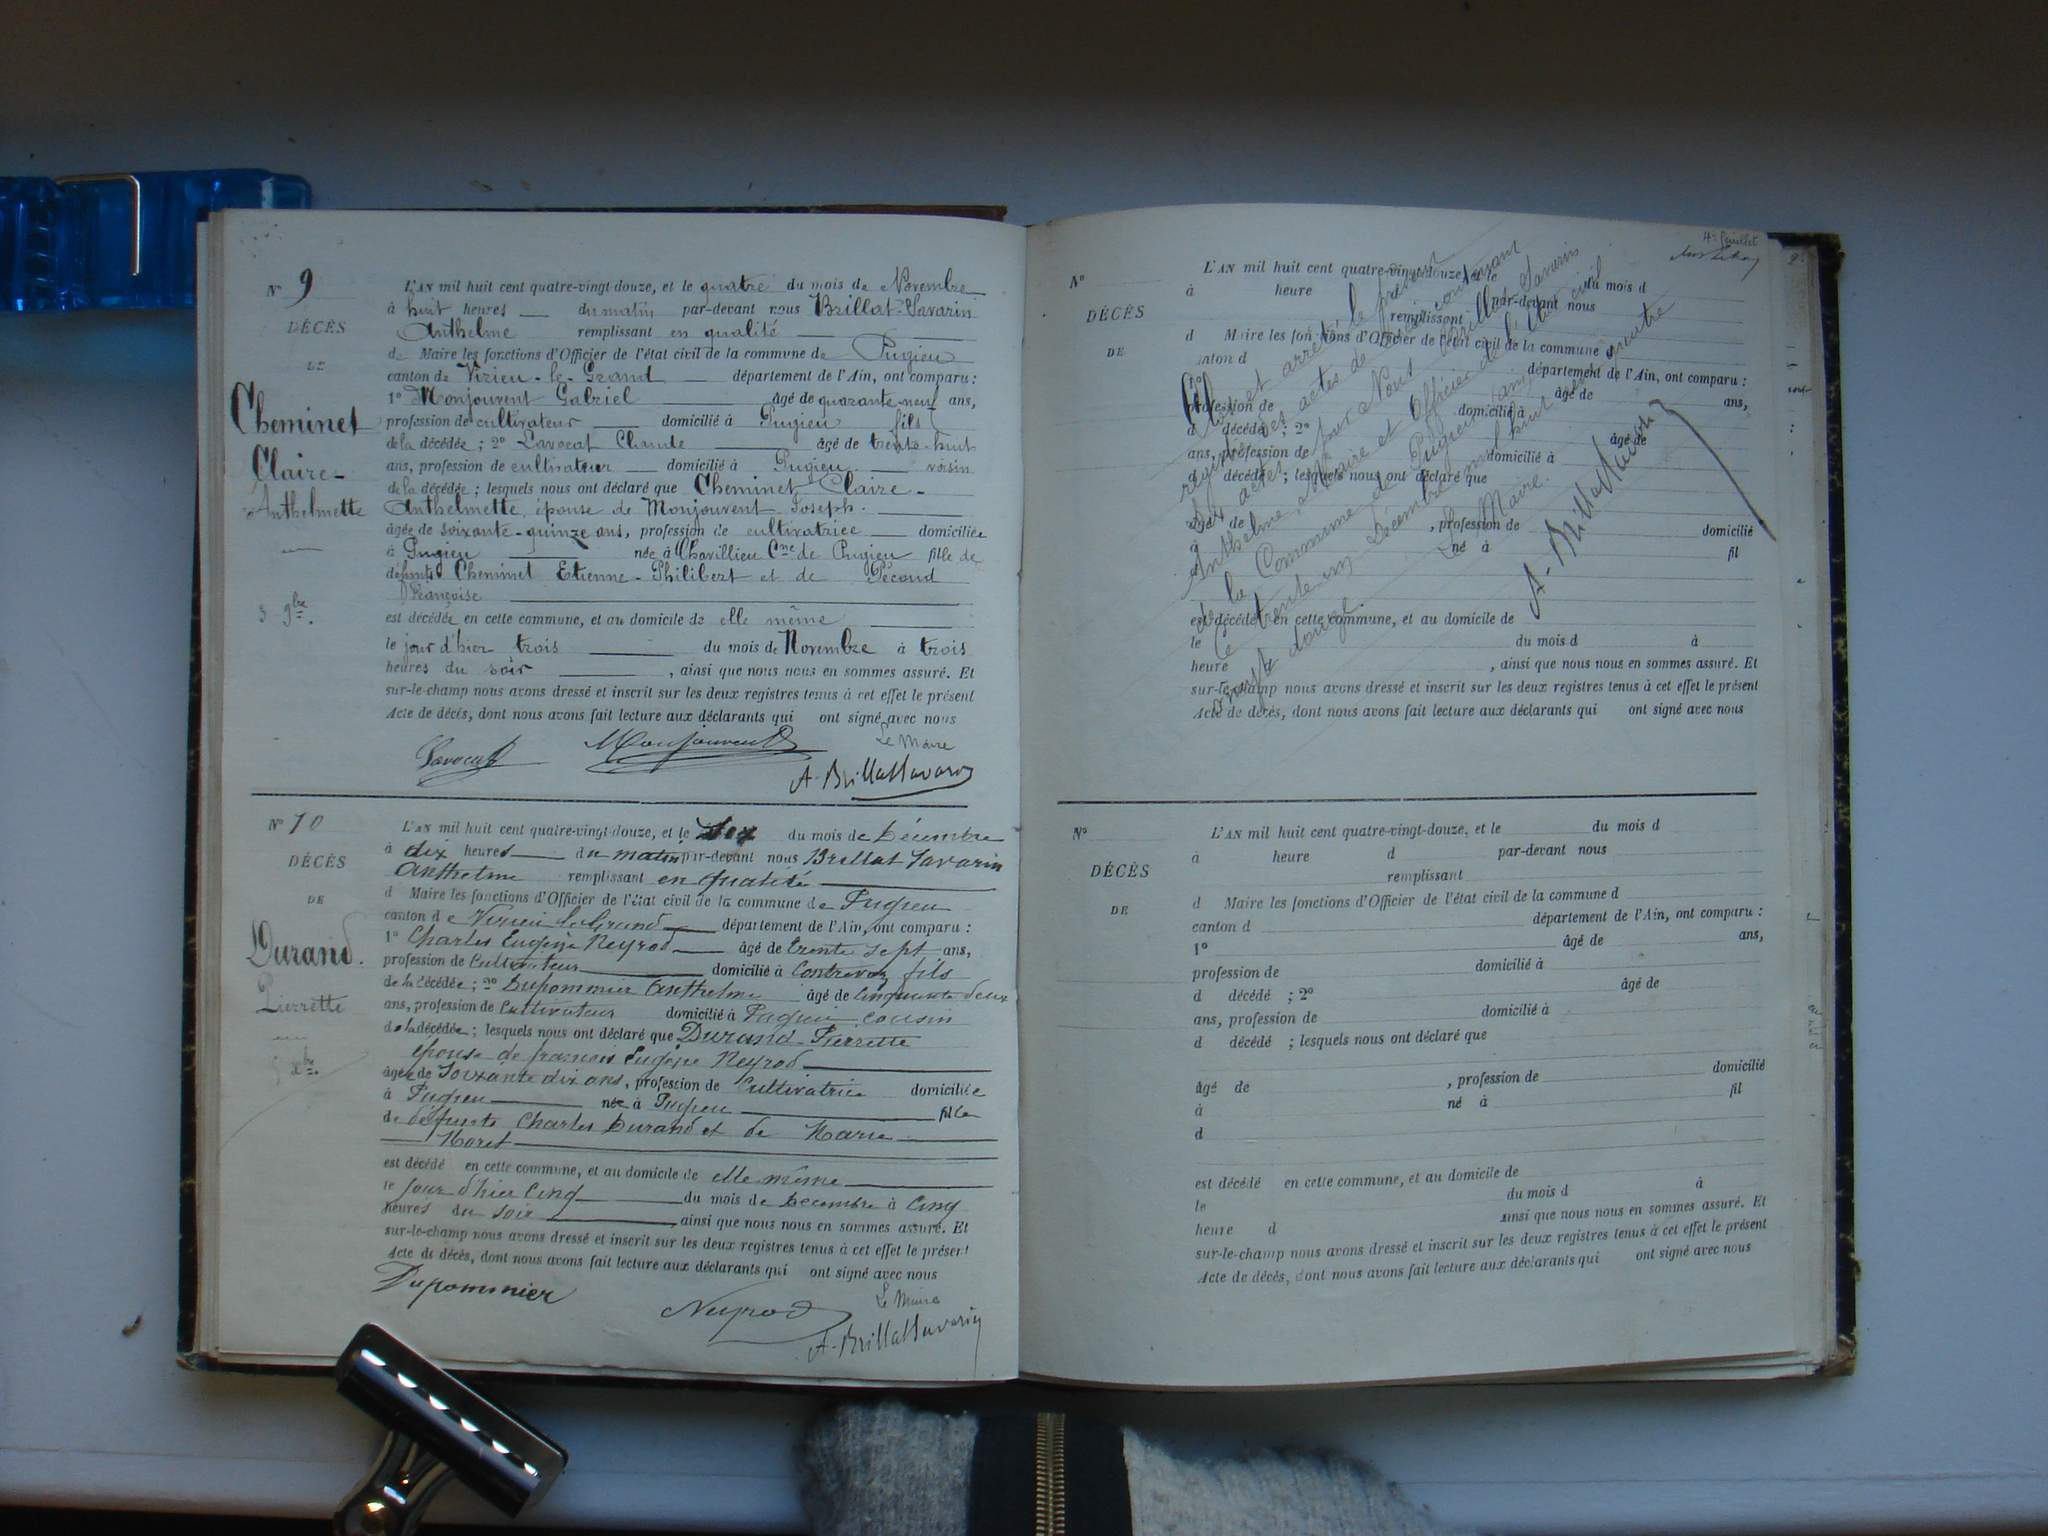 N° 9
DÉCÈS
DE
Cheminet
Claire-
Anthelmette
3 9bre.
L'AN mil huit cent quatre-vingt-douze, et le quatre du mois de Novembre
à huit heures du matin par-devant nous Brillat-Savarin
Anthelme remplissant en qualité
de Maire les fonctions d'Officier de l'état civil de la commune de Pugieu
canton de Virieu-le-Grand département de l'Ain, ont comparu :
1° Monjouvent Gabriel âgé de quarante-neuf ans,
profession de cultivateur domicilié à Pugieu fils
de la décédée ; 2° Lavocat Claude âgé de trente-huit
ans, profession de cultivateur domicilié à Pugieu voisin
de la décédée ; lesquels nous ont déclaré que Cheminet Claire-
Anthelmette, épouse de Monjouvent Joseph.
âgée de soixante-quinze ans, profession de cultivatrice domiciliée
à Pugieu née à Chavillieu Cne de Pugieu fille de
défunts Cheminet Etienne-Philibert et de Pécoud
Françoise
est décédée en cette commune, et au domicile de elle même
le jour d'hier trois du mois de Novembre à trois
heures du soir, ainsi que nous nous en sommes assuré. Et
sur-le-champ nous avons dressé et inscrit sur les deux registres tenus à cet effet le présent
Acte de décès, dont nous avons fait lecture aux déclarants qui ont signé avec nous
Le Maire
Lavocat Monjouvent
A. BrillatSavarin
N° 10
DÉCÈS
DE
Durand.
Pierrette
5 Xbre.
L'AN mil huit cent quatre-vingt-douze, et le Six du mois de Décembre
à dix heures du matin par-devant nous Brillat Savarin
Anthelme remplissant en qualité
d Maire les fonctions d'Officier de l'état civil de la commune de Pugieu
canton de Virieu le Grand département de l'Ain, ont comparu :
1° Charles Eugène Neyrod âgé de trente sept ans,
profession de Cultivateur domicilié à Contrevoz fils
de la décédée ; 2° Dupommier Anthelme âgé de Cinquante deux
ans, profession de Cultivateur domicilié à Pugieu cousin
de la décédée ; lesquels nous ont déclaré que Durand Pierrette
épouse de francois Eugène Neyrod
âgée de Soixante dix ans, profession de Cultivatrice domiciliée
à Pugieu née à Pugieu fille
de deffunts Charles Durand et de Marie
Moret
est décédé en cette commune, et au domicile de elle même
le jour d'hier Cinq du mois de Décembre à Cinq
heures du soir ainsi que nous nous en sommes assuré. Et
sur-le-champ nous avons dressé et inscrit sur les deux registres tenus à cet effet le présent
Acte de décès, dont nous avons fait lecture aux déclarants qui ont signé avec nous
Dupommier
Neyrod
Le Maire
A. BrillatSavarin
4e feuillet
N°
DÉCÈS
DE
L'AN mil huit cent quatre-vingt-douze, et le du mois d
à heure par-devant nous
remplissant
d Maire les fonctions d'Officier de l'état civil de la commune d
canton d département de l'Ain, ont comparu :
1° âgé de ans,
profession de domicilié à
d décédé ; 2° âgé de
ans, profession de domicilié à
d décédé ; lesquels nous ont déclaré que
âgé de , profession de domicilié
à né à fil
d
est décédé en cette commune, et au domicile de
le du mois d à
heure , ainsi que nous nous en sommes assuré. Et
sur-le-champ nous avons dressé et inscrit sur les deux registres tenus à cet effet le présent
Acte de décès, dont nous avons fait lecture aux déclarants qui ont signé avec nous
Clos et arrêté le présent
registre des actes de décès contenant
dix actes par Nous Brillat-Savarin
Anthelme, Maire et Officier de l'état civil
de la Commune de Pugieu
Ce trente un Décembre mil huit cent quatre
vingt douze
Le Maire.
A. BrillatSavarin
N°
DÉCÈS
DE
L'AN mil huit cent quatre-vingt-douze, et le du mois d
à heure d par-devant nous
remplissant
d Maire les fonctions d'Officier de l'état civil de la commune d
canton d département de l'Ain, ont comparu :
1° âgé de ans,
profession de domicilié à
d décédé ; 2° âgé de
ans, profession de domicilié à
d décédé ; lesquels nous ont déclaré que
âgé de , profession de domicilié
à né à fil
d
est décédé en cette commune, et au domicile de
le du mois d à
heure d ainsi que nous nous en sommes assuré. Et
sur-le-champ nous avons dressé et inscrit sur les deux registres tenus à cet effet le présent
Acte de décès, dont nous avons fait lecture aux déclarants qui ont signé avec nous